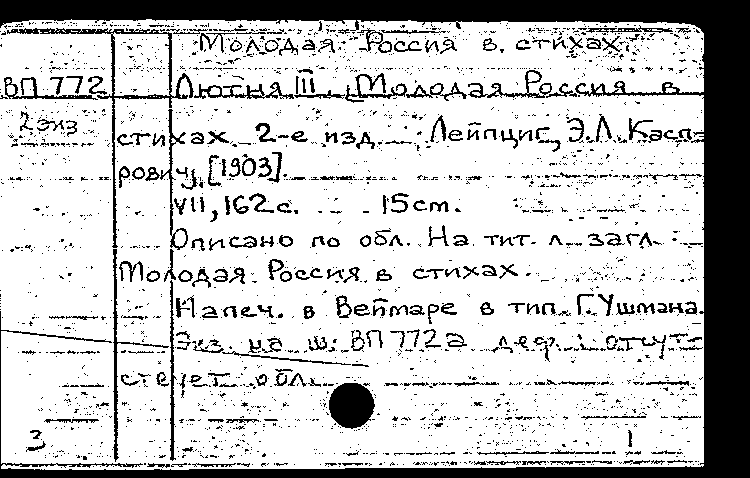 Молодая Россия в стихах.
ВП 772 Лютня III. Молодая Россия в
2 экз стихах. 2-е изд. Лейпциг, Э.Л. Касп-
рович, [1903].
VII, 162 с. 15 cm.
Описано по обл. На тит. л. загл.:
Молодая Россия в стихах.
Напеч. в Веймаре в тип. Г. Ушмана.
Экз. на ш. ВП 772а деф.: отсут-
ствует обл.
3 1